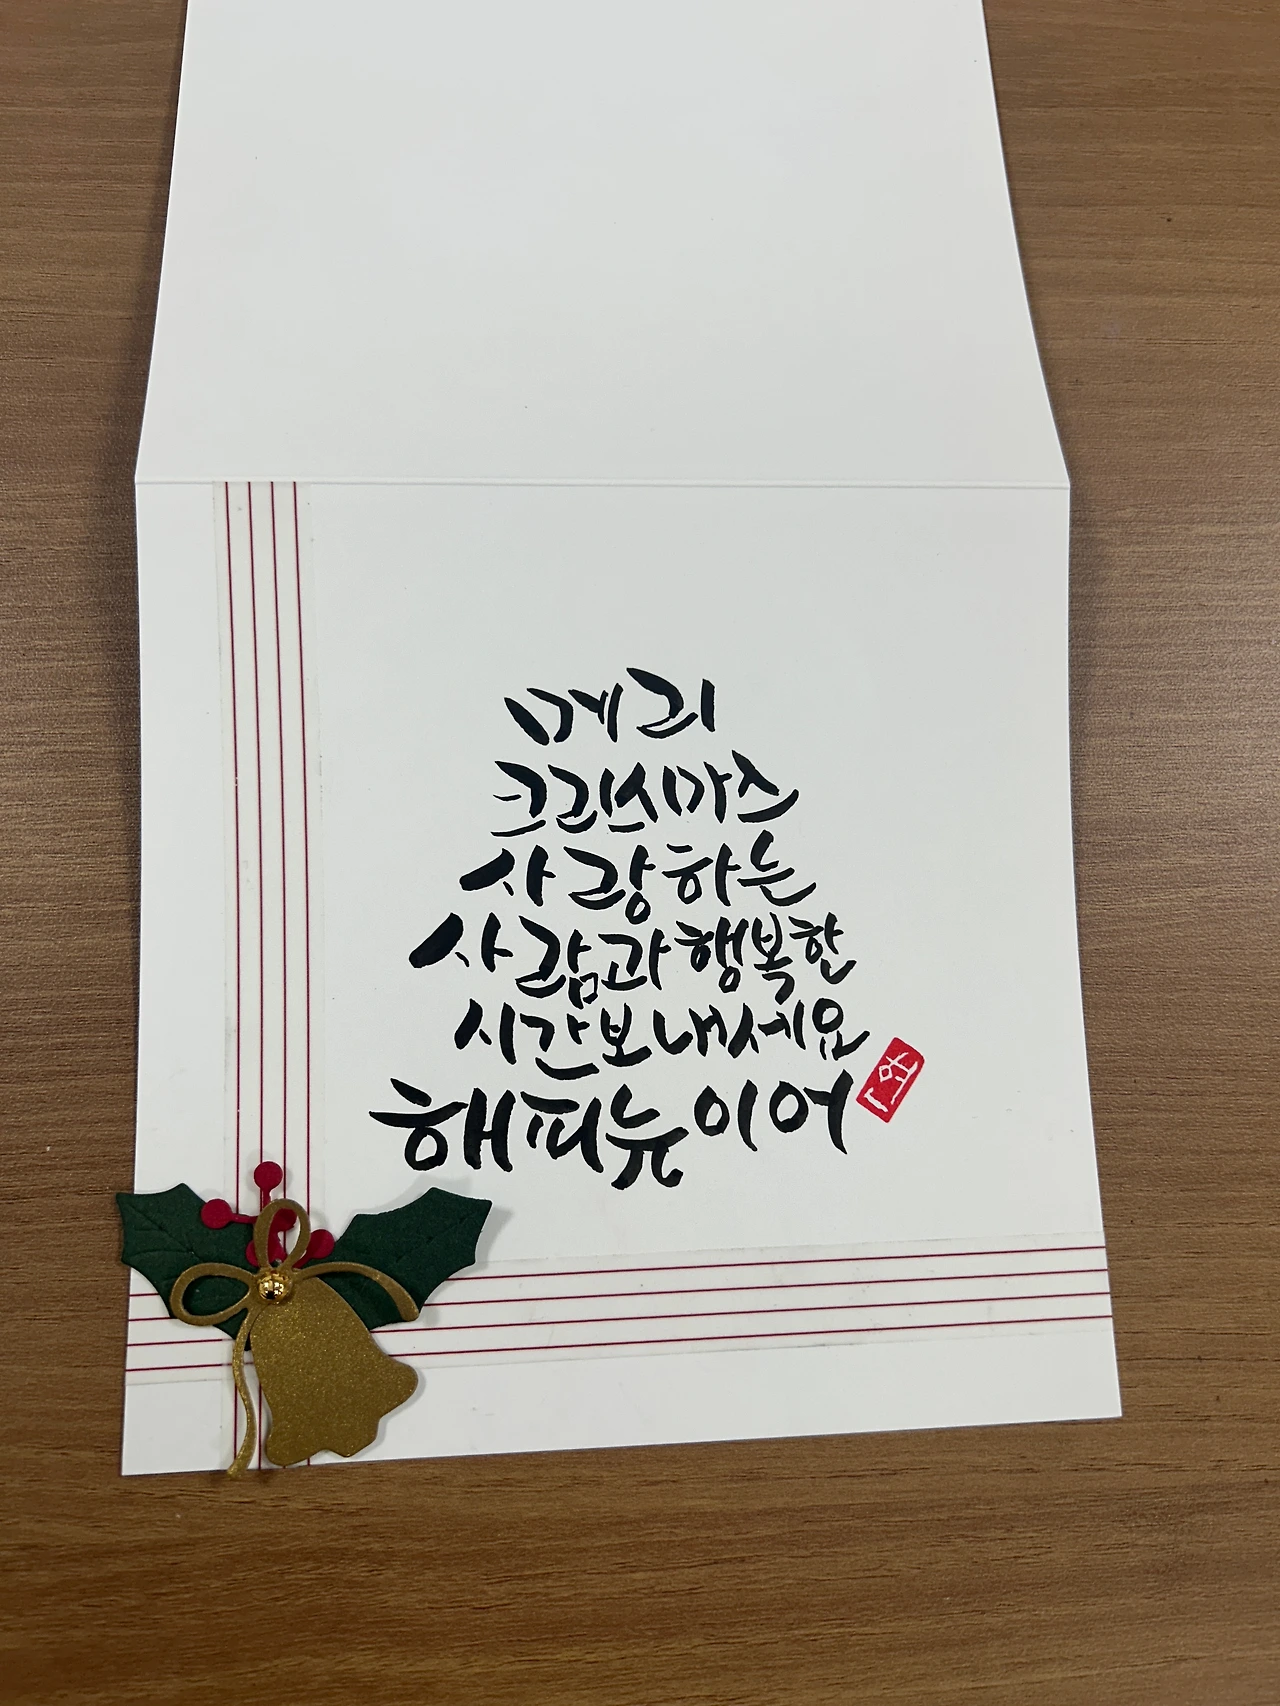 메리
크리스마스
사랑하는
사람과 행복한
시간 보내세요
해피뉴이어